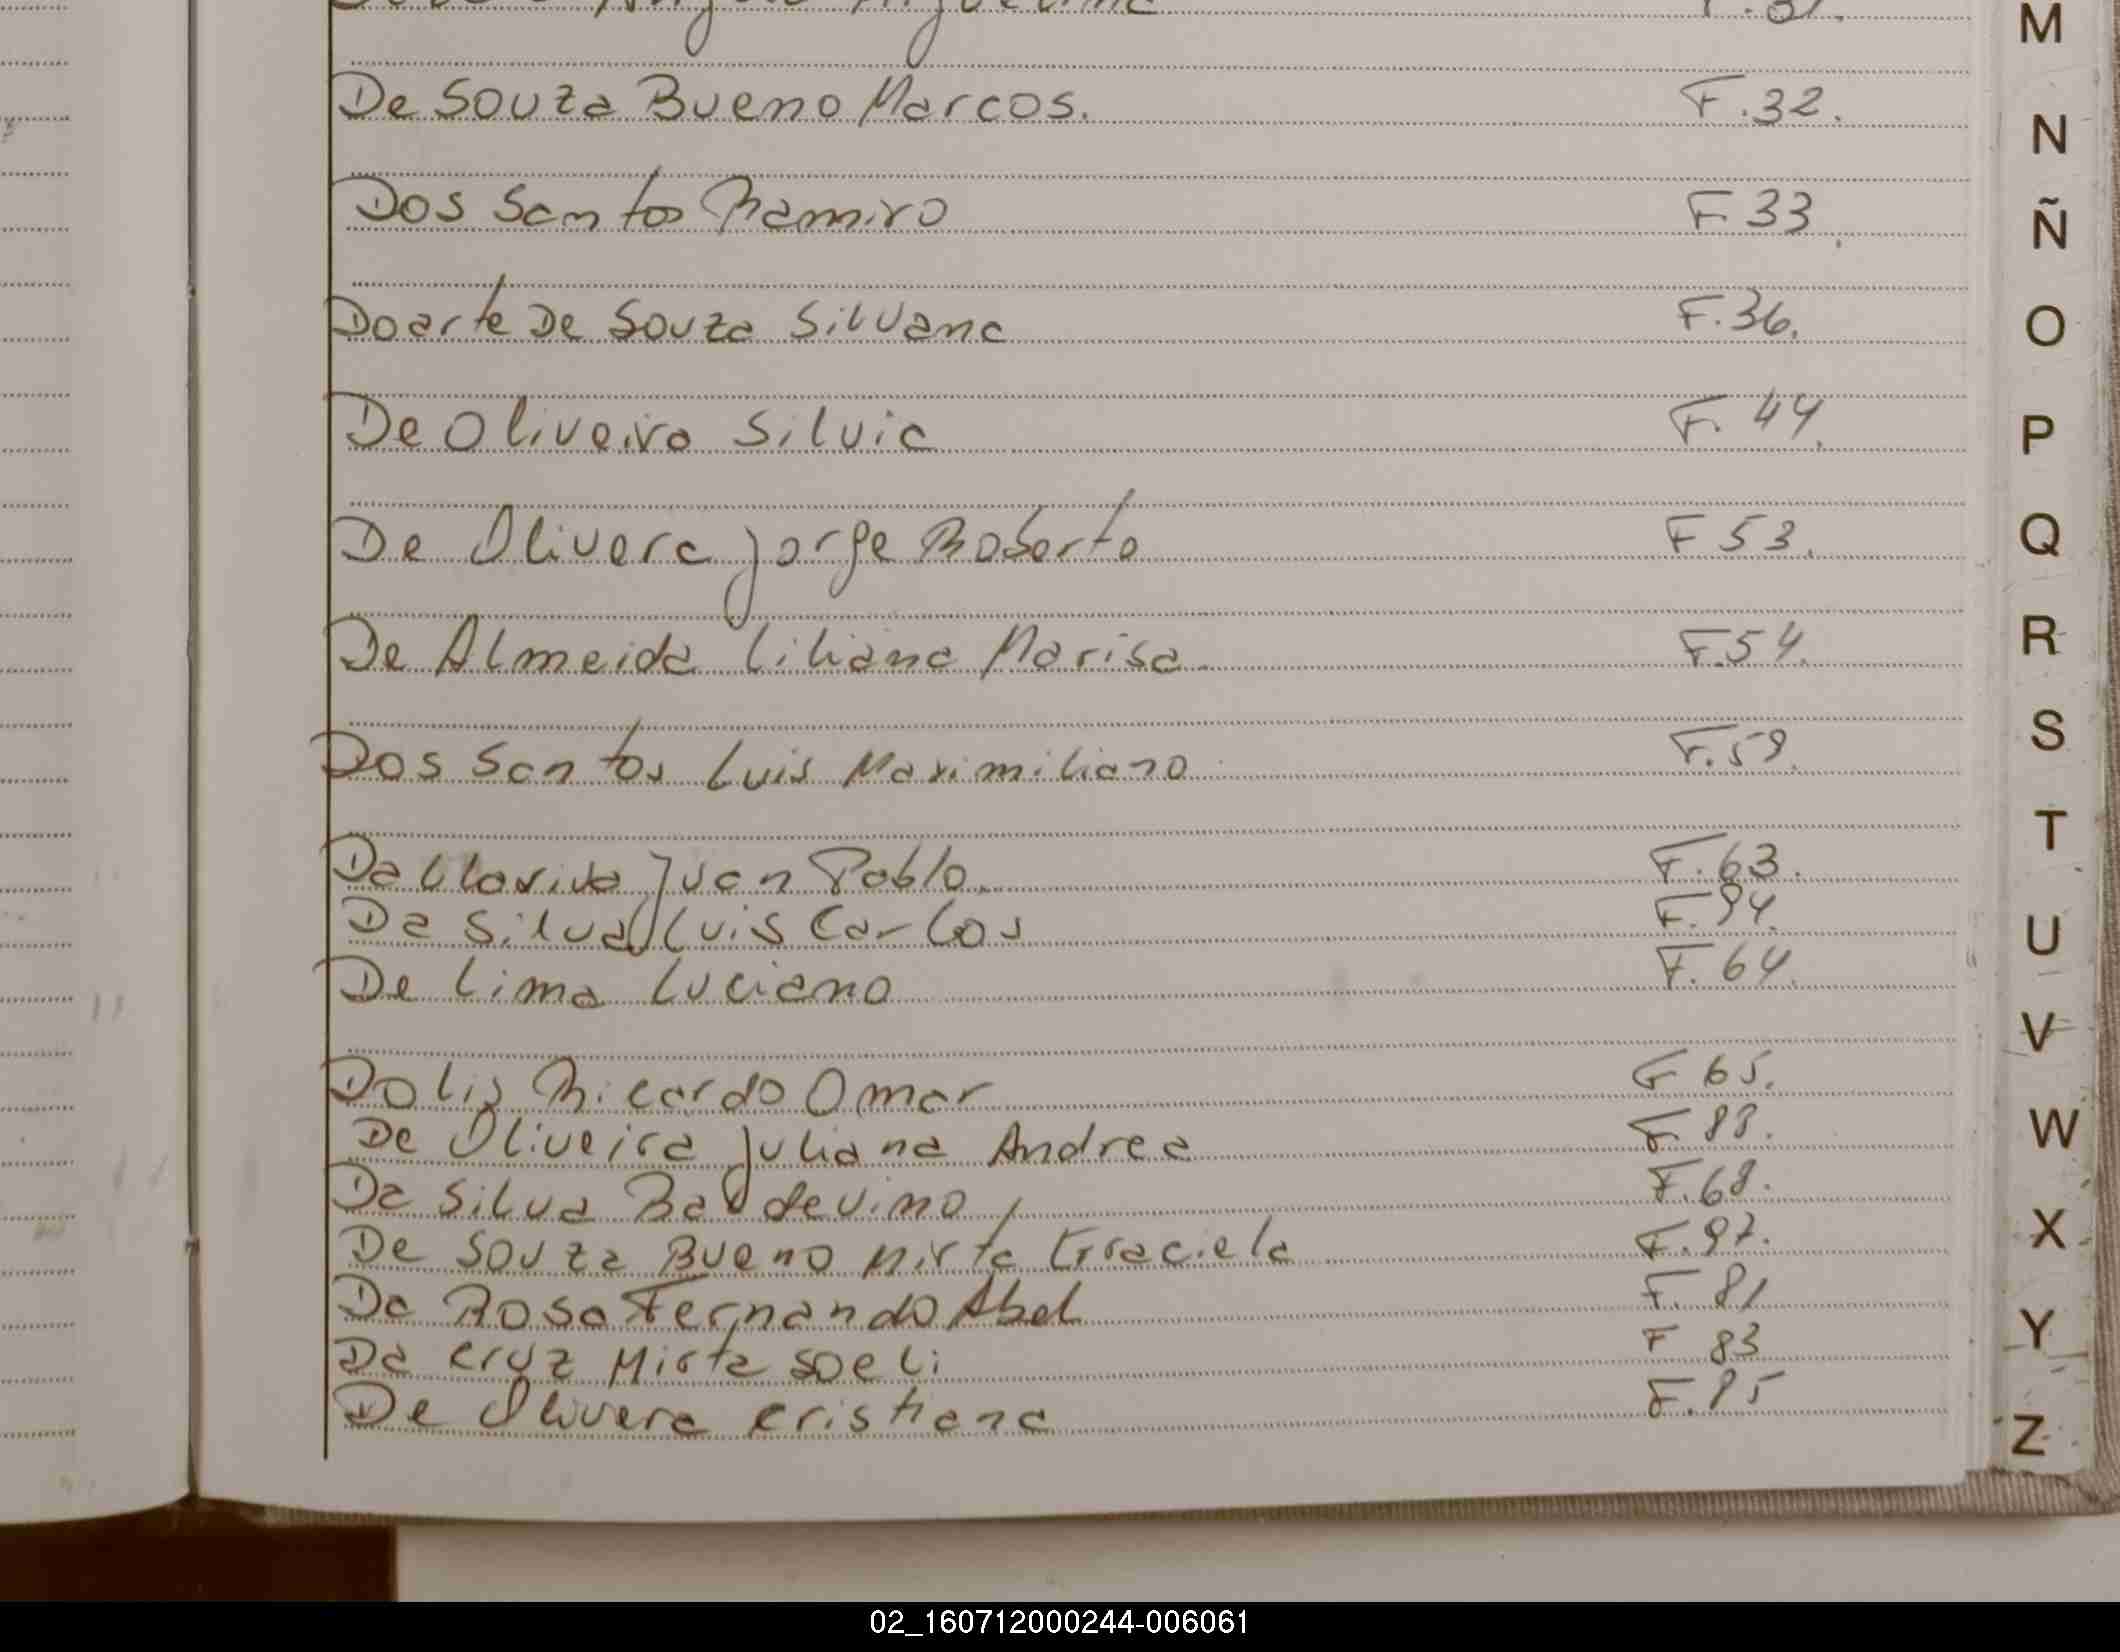 F.31.
De Souza Bueno Marcos. F.32.
Dos Santos Ramiro F 33.
Doarte De Souza Silvana F.36.
De Oliveira Silvia F. 44.
De Olivera Jorge Roberto F 53.
De Almeida Liliana Marisa. F.54.
Dos Santos Luis Maximiliano F.59.
Juan Pablo. F.63.
Da Silva Luis Carlos F.94.
De Lima Luciano F.64.
Dolis Ricardo Omar F 65.
De Oliveira Juliana Andrea F. 88.
Da Silva Baldevino F.68.
De Souza Bueno Mirta Graciela F.97.
Da Rosa Fernando Abel F. 81
Da Cruz Mirta Soeli F 83
De Olivera Cristiana F.85
M
N
Ñ
O
P
Q
R
S
T
U
V
W
X
Y
Z
02_160712000244-006061